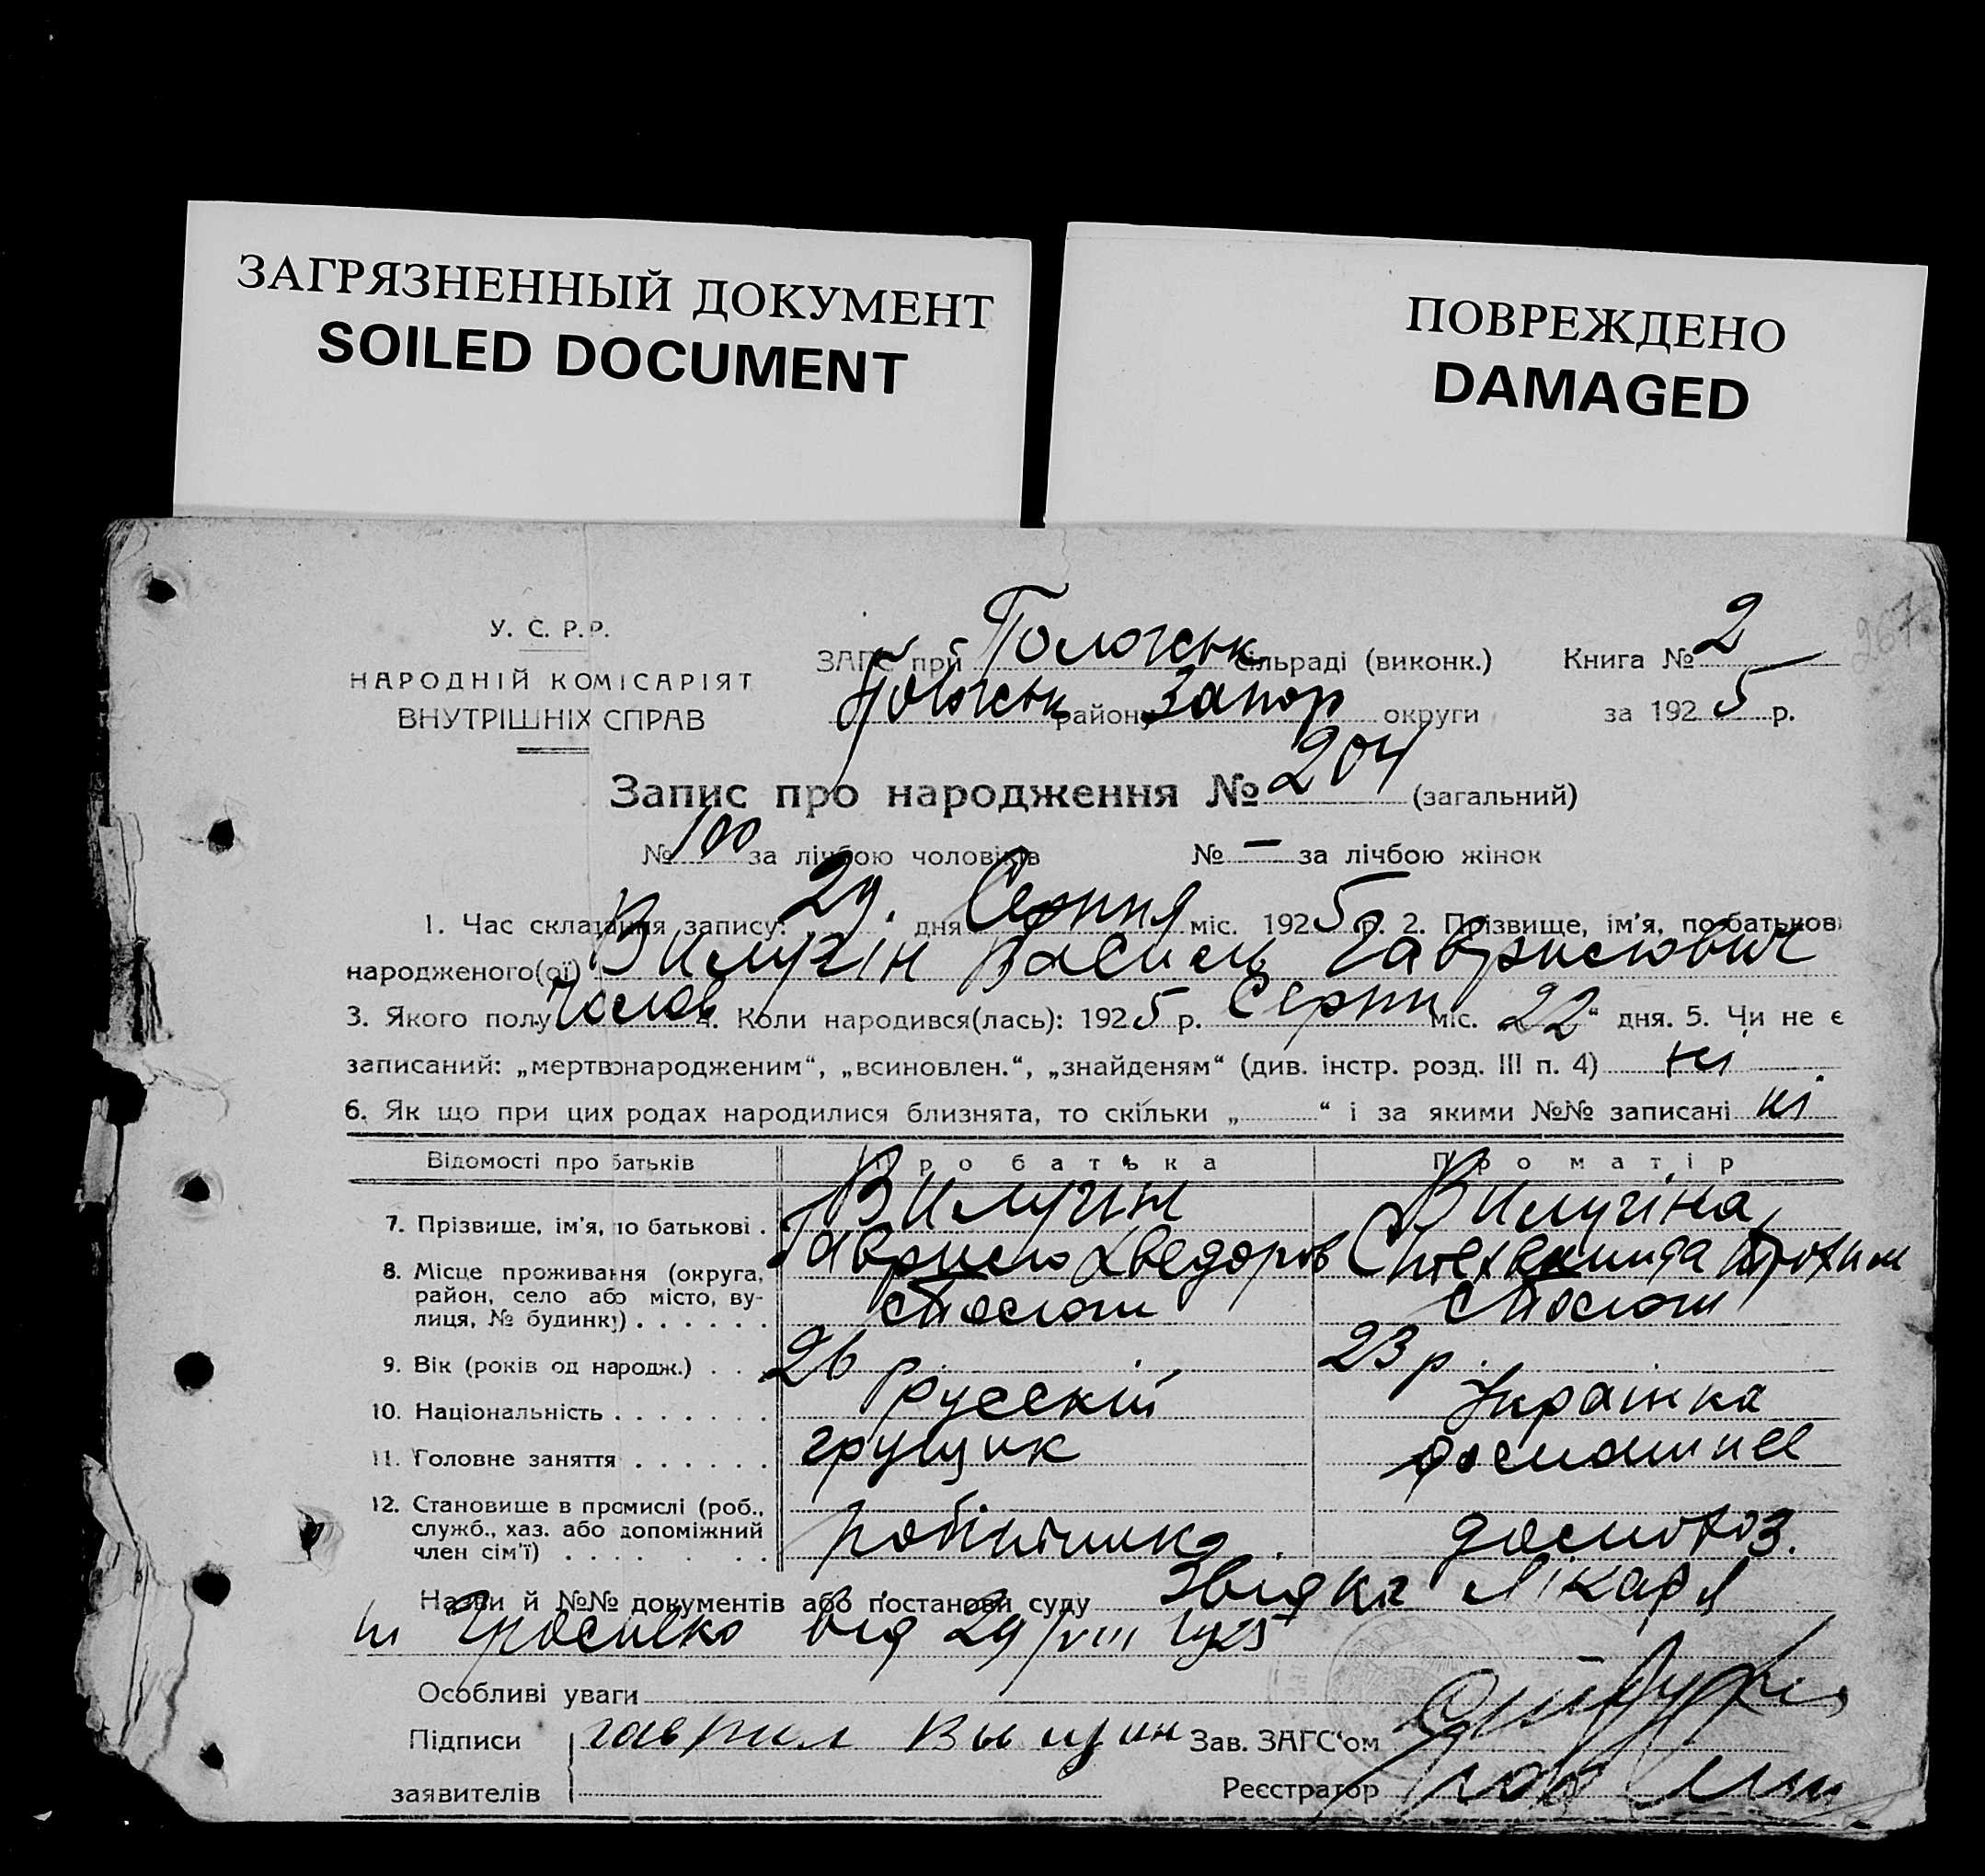 ЗАГРЯЗНЕННЫЙ ДОКУМЕНТ
SOILED DOCUMENT
ПОВРЕЖДЕНО
DAMAGED
267
У. С. Р.Р.
НАРОДНІЙ КОМІСАРІЯТ
ВНУТРІШНІХ СПРАВ
ЗАГС при Пологськ сільраді (виконк.) Книга № 2
Пологськ району Запор округи за 1925 р.
Запис про народження № 204 (загальний)
№ 100 за лічбою чоловіків № — за лічбою жінок
1. Час складання запису: 29. дня Серпня міс. 1925 р. 2. Прізвище, ім'я, по батькові
народженого(ої) Василь Гаврилович
3. Якого полу Чолов 4. Коли народився(лась): 1925 р. Серпн міс. „22“ дня. 5. Чи не є
записаний: „мертвонародженим“, „всиновлен.“, „знайденям“ (див. інстр. розд. III п. 4) ні
6. Як що при цих родах народилися близнята, то скільки „ “ і за якими №№ записані ні
Відомості про батьків Про батька Про матір
7. Прізвище, ім'я, по батькові .
Гаврило Хведоров
8. Місце проживання (округа,
район, село або місто, ву-
лиця, № будинку) . . . . . .
9. Вік (років од народж.) . . 26 р. 23 р.
10. Національність . . . . . . . русскій Українка
11. Головне заняття . . . . . . грущик
12. Становище в промислі (роб.,
служб., хаз. або допоміжний
член сім'ї) . . . . . . . . робітник
Назви й №№ документів або постанови суду Звідка Лікаря
від 29/VIII 1925
Особливі уваги
Підписи гаврил Зав. ЗАГС'ом
заявителів Реєстратор